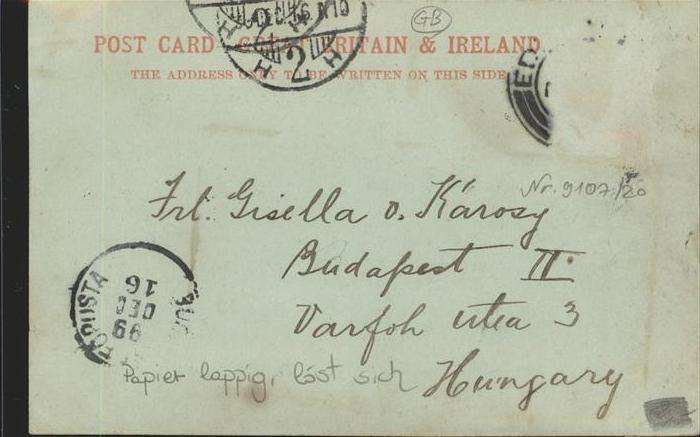 GB
POST CARD GREAT BRITAIN & IRELAND
THE ADDRESS ONLY TO BE WRITTEN ON THIS SIDE
H 2 H
ED
Nr. 9107/20
Frl. Gisella v. Károsy
Budapest II.
Varfoh utca 3
Hungary
FŐPOSTA
99
DEC
16
Papier lappig, löst sich